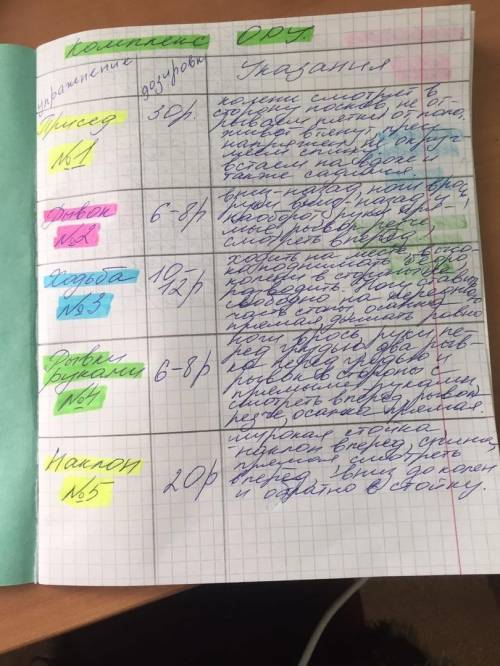 Комплекс ОРУ.
упражнение дозировка Указания
Присед №1
30р.
колени смотрят в
сторону носков, не от-
рываем пятки от пола.
живот втянут, пресс
напряжен, не округ-
ляем спину,
встаем на вдохе и
также садимся.
Рывок №2
6-8р
вниз-назад, ноги врозь
руки вниз-назад и
наоборот, руки пря-
мые, рывок резче
смотреть вперед.
Ходьба №3
10-12р
ходить на месте, высо-
ко поднимать бедро,
колени в сторону не
разводить. Ногу ставить
свободно на переднюю
часть стопы, осанка
прямая, дышать ровно
Рывки руками №4
6-8р
ноги врозь, руки пе-
ред грудью два рыв-
ка перед грудью и
рывок в стороны с
прямыми руками,
смотреть вперед, рывок
резче, осанка прямая.
Наклон №5
20р
широкая стойка
наклон вперед, спина
прямая, смотреть
вперед, вниз до колен
и обратно в стойку.